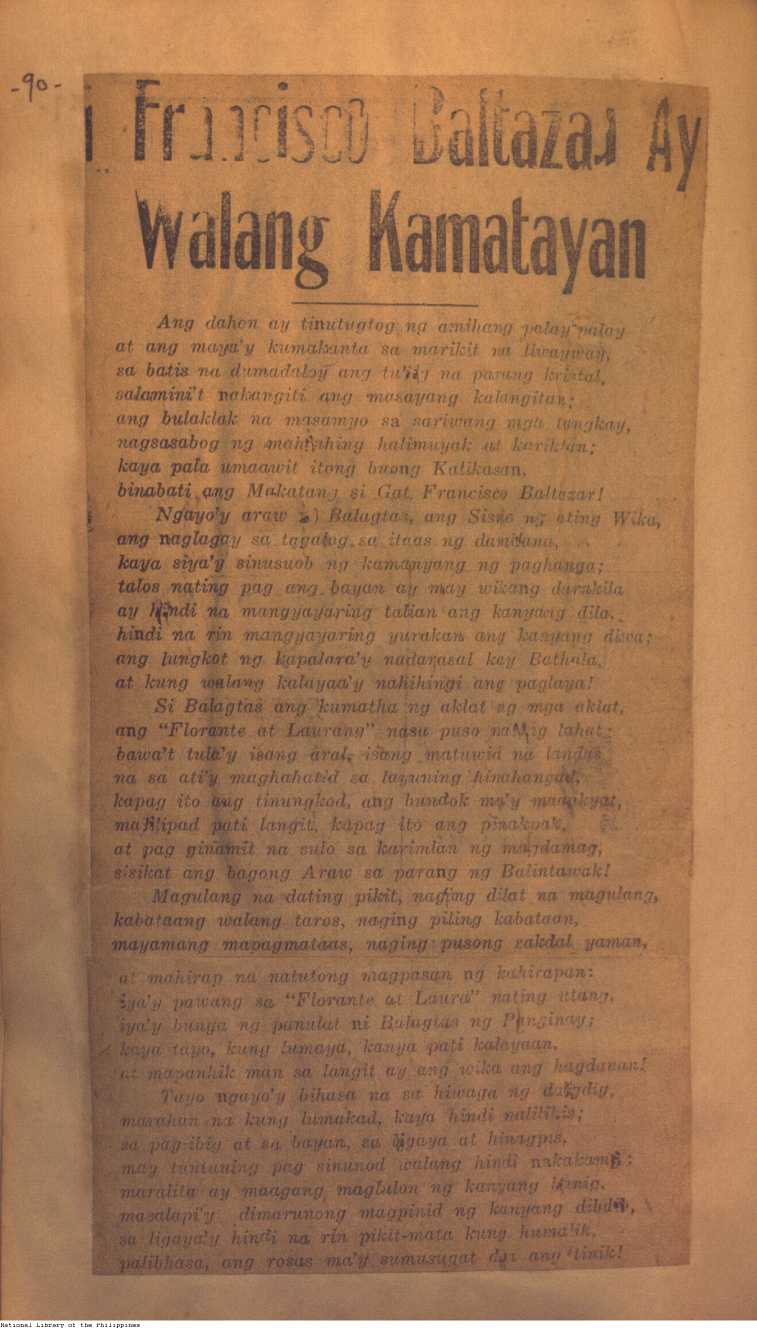 -90-
i Francisco Baltazar Ay
Walang Kamatayan
Ang dahon ay tinutugtog ng amihang palay-palay
at ang maya'y kumakanta sa marikit na liwayway,
sa batis na dumadaloy ang tubig na parang kristal,
salamini't nakangiti ang masayang kalangitan;
ang bulaklak na masamyo sa sariwang mga tangkay,
nagsasabog ng mahinhing halimuyak at kariktan;
kaya pala umaawit itong buong Kalikasan,
binabati ang Makatang si Gat. Francisco Baltazar!
Ngayo'y araw ni Balagtas, ang Sisne ng ating Wika,
ang naglagay sa tagalog sa itaas ng dambana,
kaya siya'y sinusuob ng kamanyang ng paghanga;
talos nating pag ang bayan ay may wikang darakila
ay hindi na mangyayaring talian ang kanyang dila,
hindi na rin mangyayaring yurakan ang kanyang diwa;
ang lungkot ng kapalara'y nadarasal kay Bathala,
at kung walang kalayaa'y nahihingi ang paglaya!
Si Balagtas ang kumatha ng aklat ng mga aklat,
ang "Florante at Laurang" nasa puso nating lahat;
bawa't tula'y isang aral, isang matuwid na landas
na sa ati'y maghahatid sa layuning hinahangad,
kapag ito ang tinungkod, ang bundok ma'y maaakyat,
malilipad pati langit, kapag ito ang pinakpak,
at pag ginamit na sulo sa karimlan ng magdamag,
sisikat ang bagong Araw sa parang ng Balintawak!
Magulang na dating pikit, naging dilat na magulang,
kabataang walang taros, naging piling kabataan,
mayamang mapagmataas, naging pusong sakdal yaman,
at mahirap na natutong magpasan ng kahirapan:
iya'y pawang sa "Florante at Laura" nating utang,
iya'y bunga ng panulat ni Balagtas ng Panginay;
kaya tayo, kung lumaya, kanya pati kalayaan,
at mapanhik man sa langit ay ang wika ang hagdanan!
Tayo ngayo'y bihasa na sa hiwaga ng daigdig,
marahan na kung lumakad, kaya hindi nalilihis;
sa pag-ibig at sa bayan, sa ligaya at hinagpis,
may tuntuning pag sinunod walang hindi nakakamit;
maralita ay maagang magbilon ng kanyang
masalapi'y dimarunong magpinid ng kanyang dibdib,
sa ligaya'y hindi na rin pikit-mata kung humalik,
palibhasa, ang rosas ma'y sumusugat ang tinik!
National Library of the Philippines